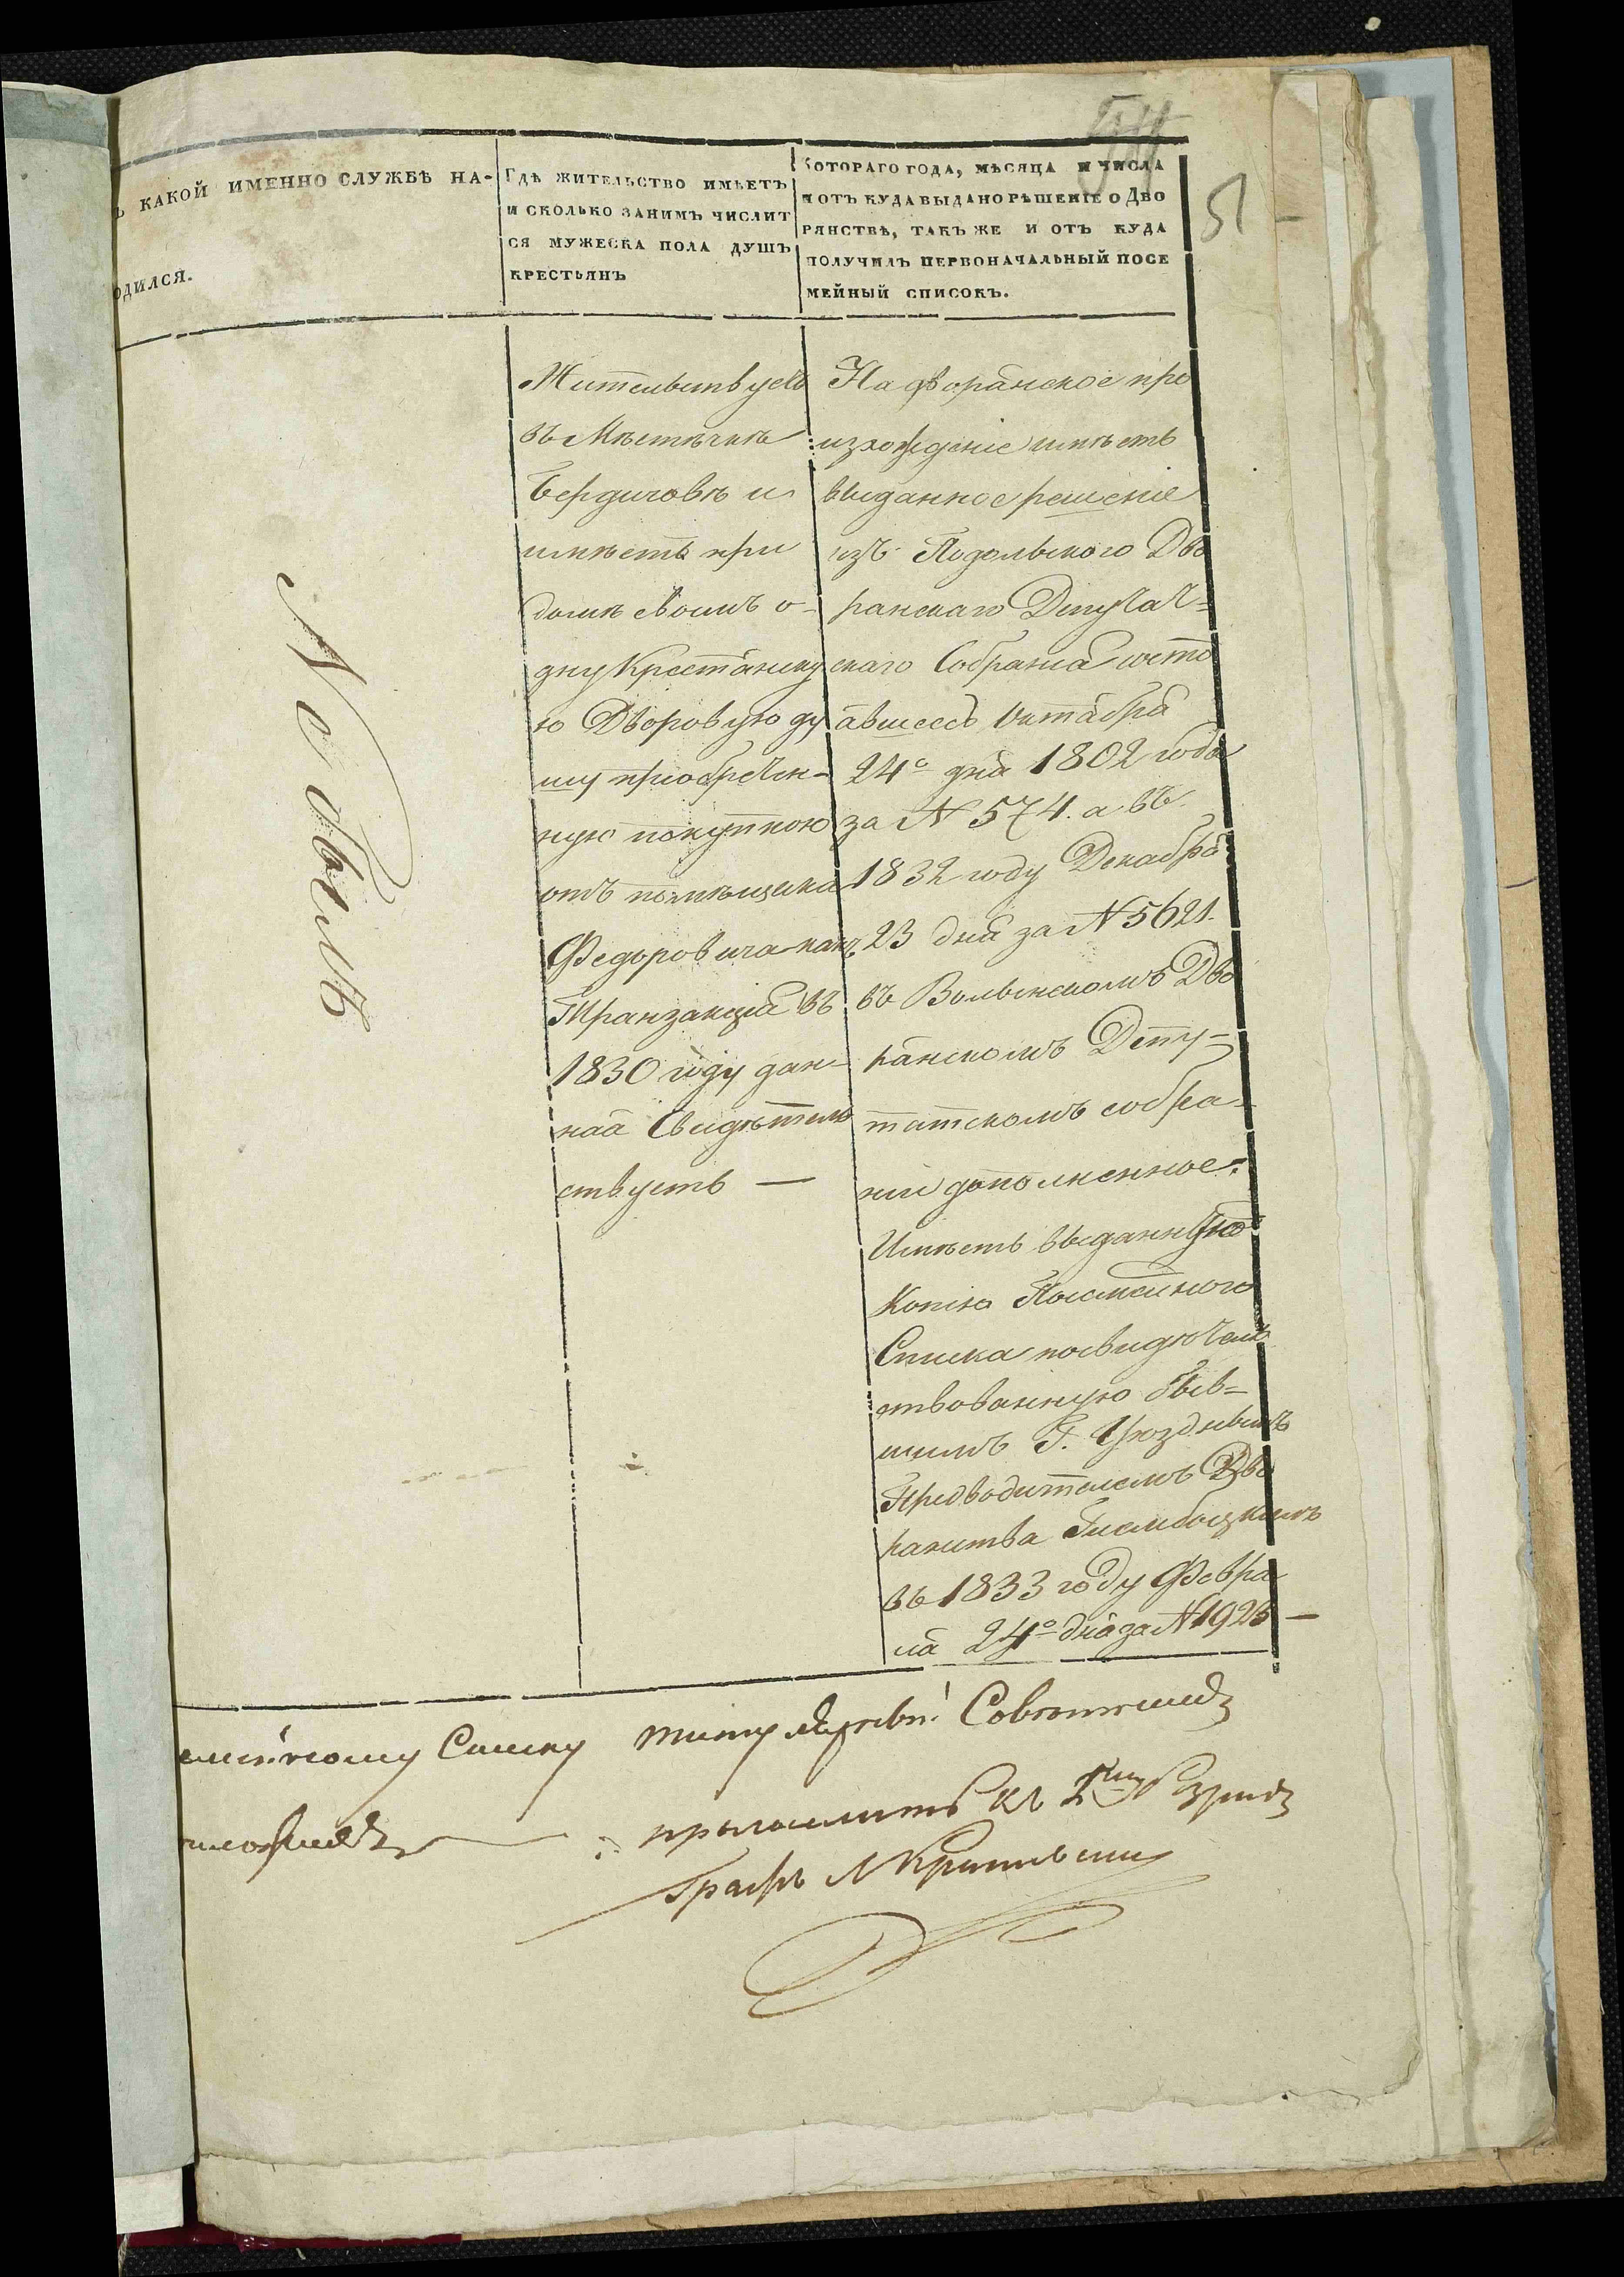 54
51
ъ какой именно службѣ на-
одился.
Гдѣ жительство имѣетъ
и сколько занимъ числит
ся мужеска пола душъ
крестьянъ
котораго года, мѣсяца и числа
и отъ куда выдано рѣшеніе о Дво
рянствѣ, такъ же и отъ куда
получилъ первоначальный посе
мейный списокъ.
Не былъ
Жительствуетъ
въ Мѣстѣчкѣ
Бердичовѣ и
имѣетъ при
домѣ своимъ о-
дну Крестянску
ю Дворовую ду
шу приобретен-
ную покупкою
отъ помѣщика
Федоровича какъ
Транзакція въ
1830 году дан-
ная Свидѣтель
ствуетъ —
На дворянское про
:изхождение имѣетъ
выданное решение
изъ Подольского Дво
рянскаго Депутат=
скаго Собрания состо
явшеесь Октября
24º дня 1802 года
за N 574. а въ
1832 году Декабря
23 дня за N 5621.
въ Волынскомъ Дво
рянскомъ Депу-
татскомъ собра-
нии дополненное.
Имѣетъ выданную
Копію Посемейного
Списка посвидѣтель
ствованную быв=
шимъ Г. Уѣзднымъ
Предводителемъ Дво
рянства
въ 1833 году Февра
ля 24º дня за N 1925 —
емейному Списку
Графъ